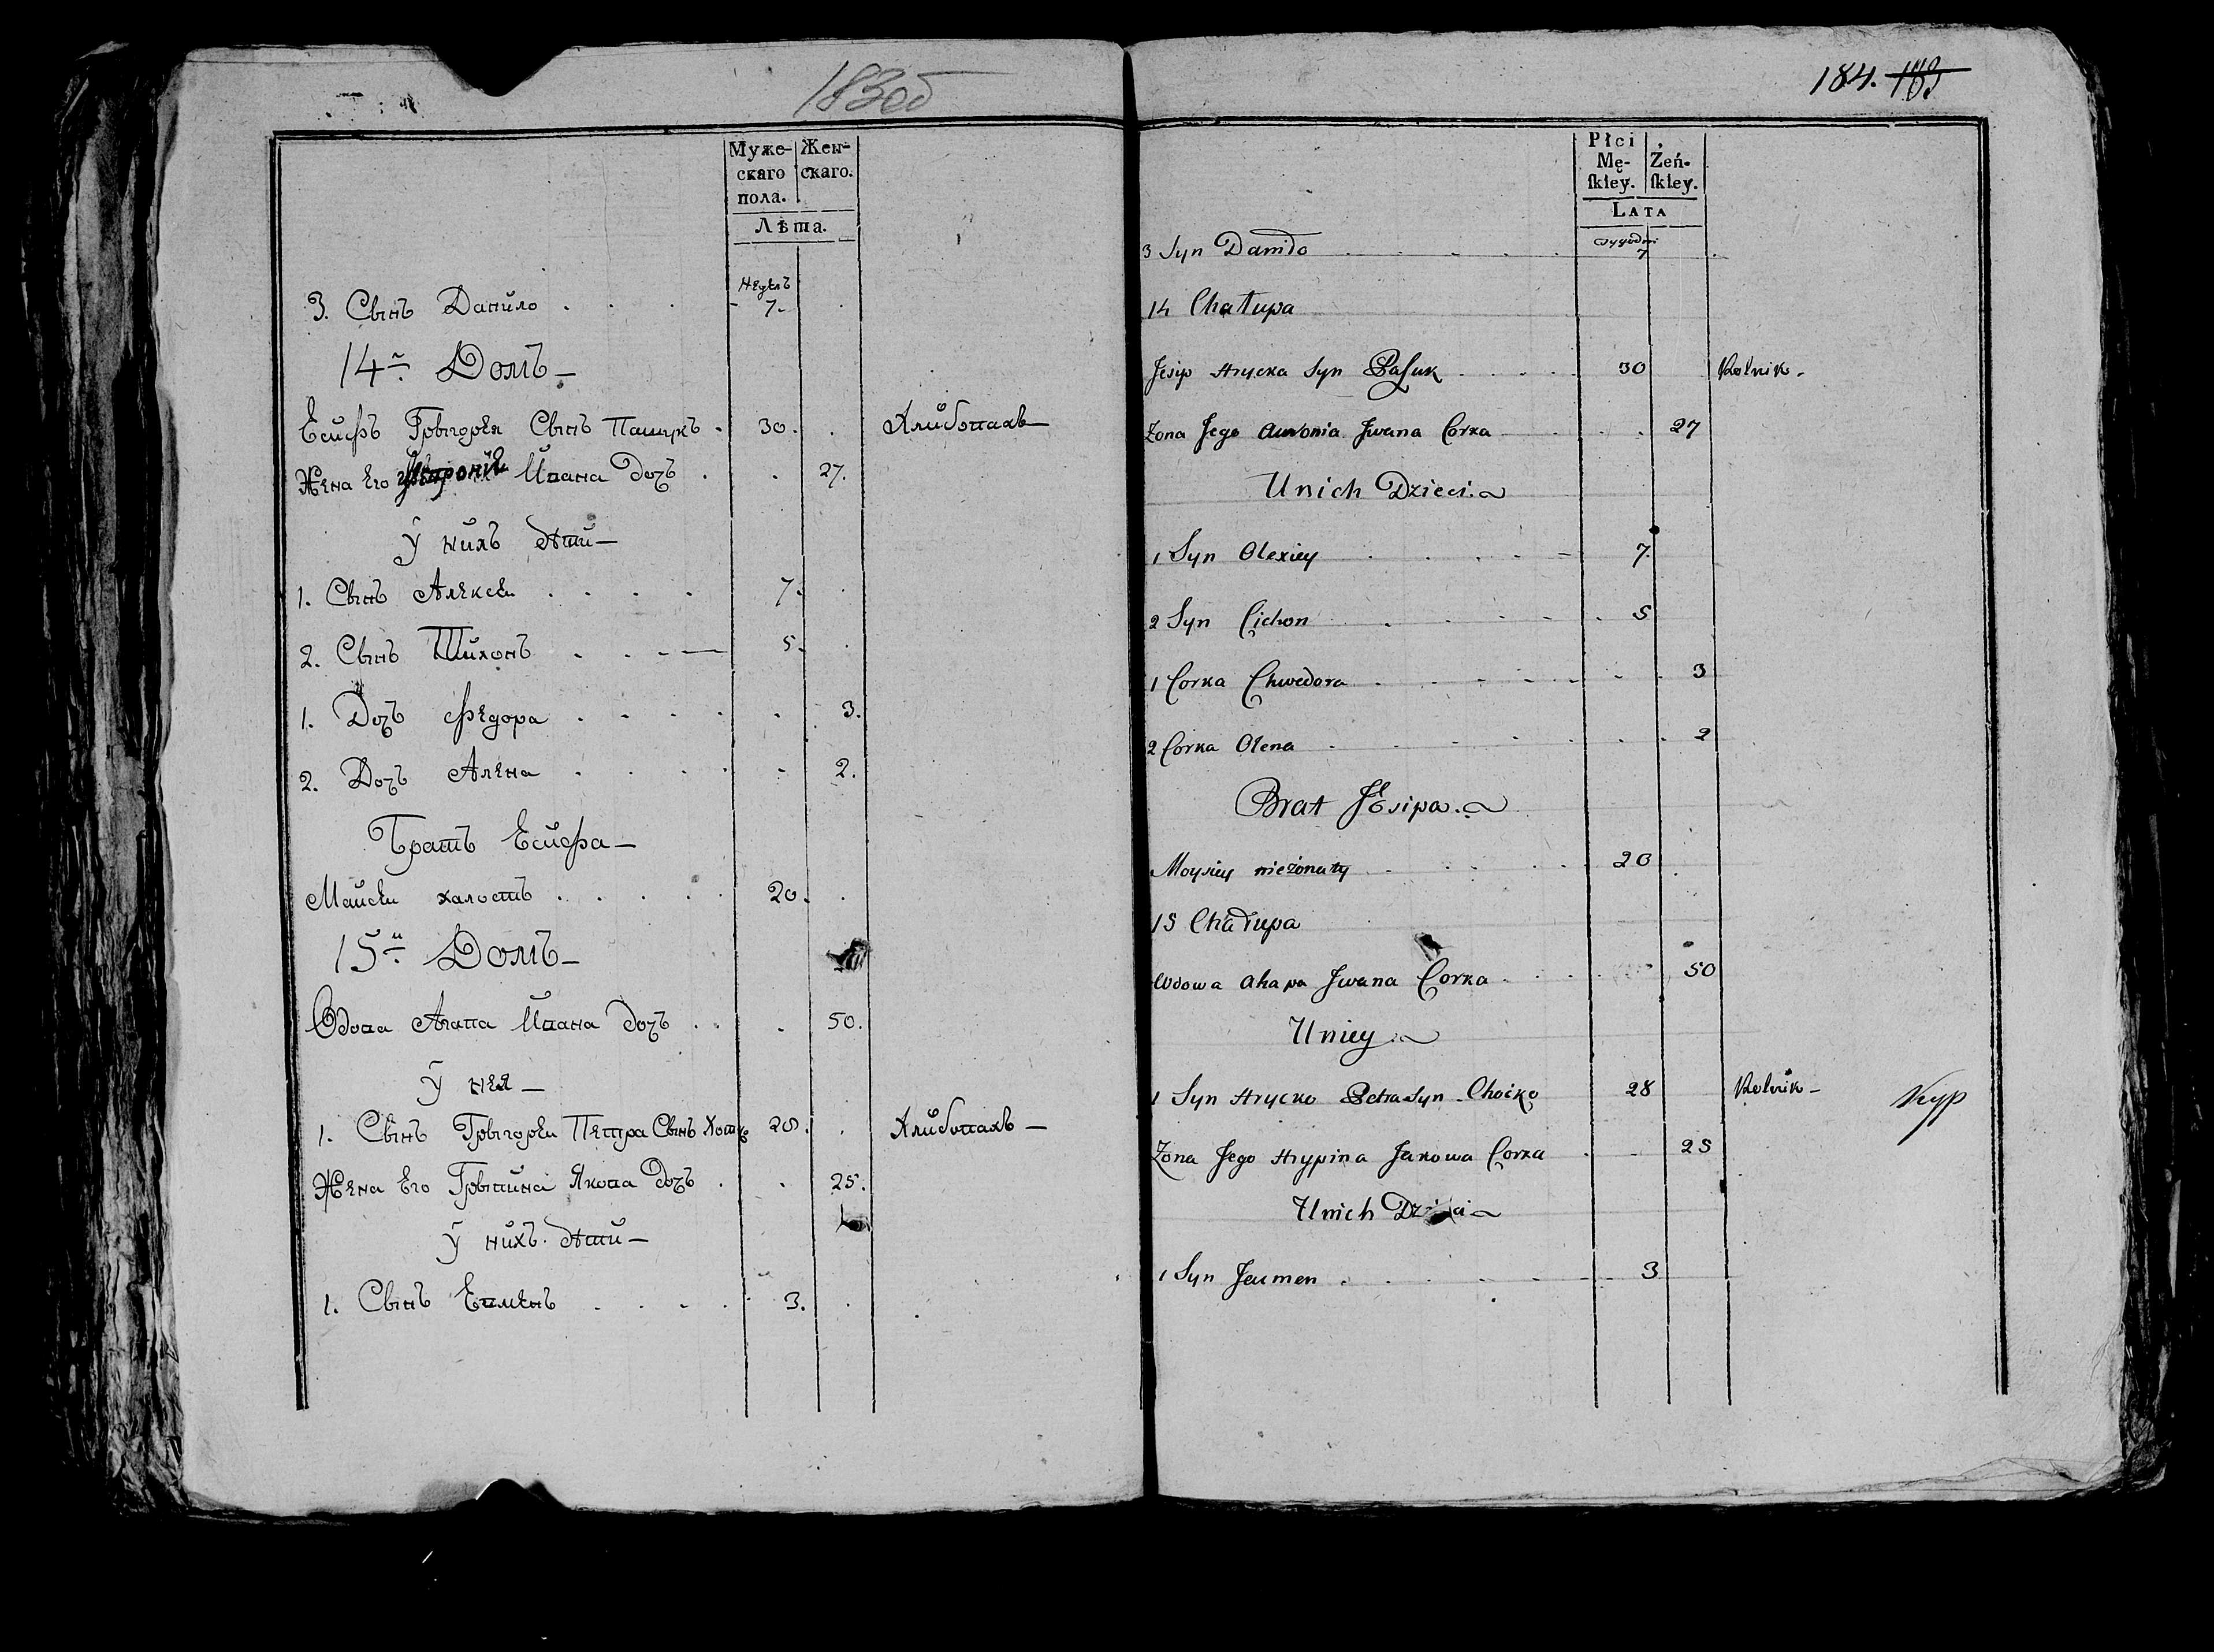 183об
Муже- Жен-
скаго скаго.
пола.
Лѣта.
Недѣль
3. Сынъ Данило . . . 7.
14й Домъ
Есифъ Грыгорея Сынъ Пашукъ . 30. Хлибопахъ
Жена Его Ивана дочъ . . 27.
У нихъ дѣти
1. Сынъ Алексѣи . . . . 7.
2. Сынъ Тихонъ . . . 5.
1. Дочъ Федора . . . . 3.
2. Дочъ Алена . . . . 2.
Братъ Есифа
Майсѣи халостъ . . . . 20.
15й Домъ
Вдова Агапа Ивана дочъ . . . 50.
У нея
1. Сынъ Грыгорѣи Петра Сынъ Хотко 28. Хлибопахъ
Жена Его Грыпина Якова дочъ . . 25.
У нихъ дѣти
1. Сынъ Евменъ . . . . 3.
184. 183
Płci
Mę- Żeń-
ſkiey. ſkiey.
LATA
3 Syn Daniło . . . . . tygodni 7
14 Chałupa
Jesip Hrycka Syn Paſuk . . . . 30 Rolnik
Zona Jego Iwana Corka . . . 27
Unich Dzieci
1 Syn Olexiey . . . . 7
2 Syn Cichon . . . . 5
1 Corka Chwedora . . . . . 3
2 Corka Olena . . . . . 2
Brat Jesipa
Moysiey nieżonaty . . . . 20
15 Chałupa
Wdowa Ahapa Iwana Corka . . . 50
Uniey
1 Syn Hrycko Petra Syn Choćko 28 Rolnik
Zona Jego Hrypina Jakowa Corka . . 25
Unich Dzieci
1 Syn Jeumen . . . . . 3